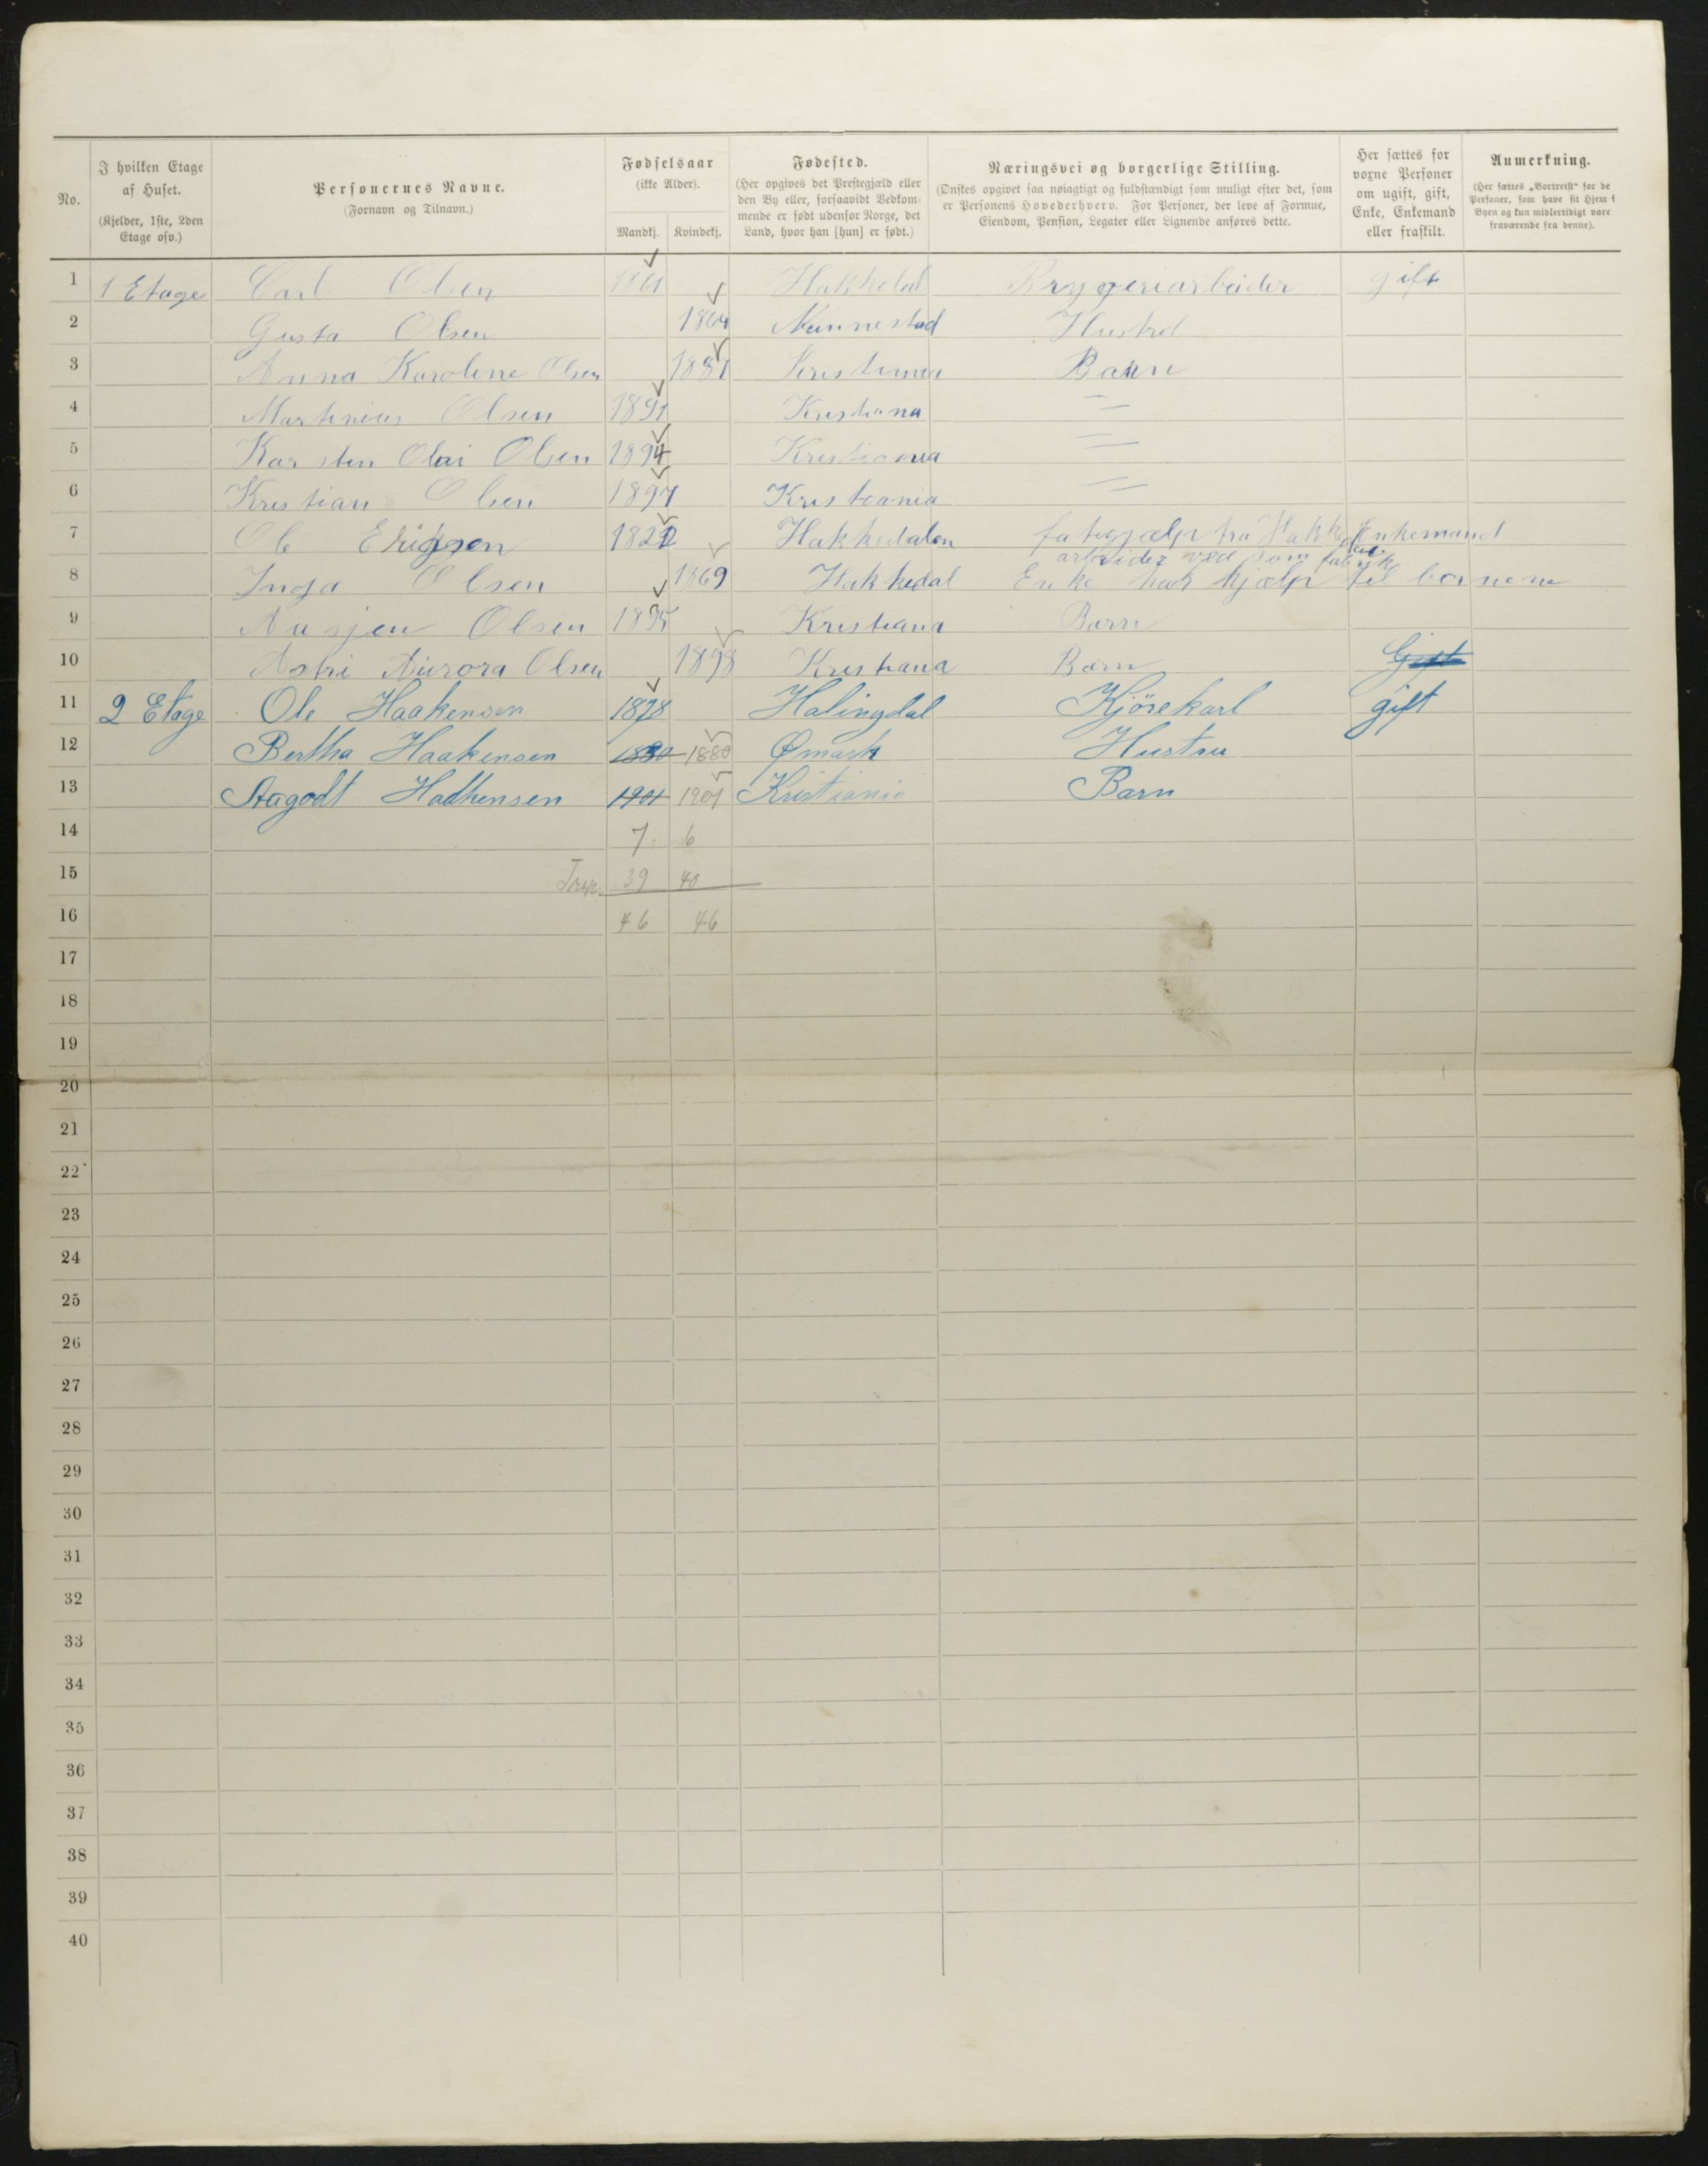 No.
I hvilken Etage af Huset.
(Kjelder, 1ste, 2den Etage osv.)
Personernes Navne.
(Fornavn og Tilnavn.)
Fødselsaar
(ikke Alder).
Mandkj. Kvindekj.
Fødested.
(Her opgives det Prestegjæld eller
den By eller, forsaavidt Vedkom-
mende er født udenfor Norge, det
Land, hvor han [hun] er født.)
Næringsvei og borgerlige Stilling.
(Ønskes opgivet saa nøiagtigt og fuldstændigt som muligt efter det, som
er Personens Hovederhverv. For Personer, der leve af Formue,
Eiendom, Pension, Legater eller Lignende anføres dette.
Her sættes for
voxne Personer
om ugift, gift,
Enke, Enkemand
eller fraskilt.
Anmerkning.
(Her sættes „Bortreist“ for de
Personer, som have sit Hjem i
Byen og kun midlertidigt vare
fraværende fra denne).
1 1 Etage Carl Olsen 1861 Hakkedal Bryggeriarbeider gift
2 Gusta Olsen 1864 Nannestad Hustrd
3 Anna Karoline Olsen 1881 Barn
4 Martinius Olsen 1891 Kristiana —
5 Karsten Olai Olsen 1894 Kristiania —
6 Kristian Olsen 1897 Kristiania —
7 Ole 1822 Hakkedalen fategjælp fra Enkemand
arbeider ved som
8 Inga Olsen 1869 Hakkedal Enke har hjælp til barnene
9 Olsen 1895 Kristiana Barn
10 Astri Aurora Olsen 1898 Kristiana Barn Gift
11 2 Etage Ole Haakensen 1878 Halingdal Kjörekarl gift
12 Bertha Haakensen 1880 1880 Ømark Hustru
13 Aagodt Haakensen 1901 1901 Kristiania Barn
14 7 6
15 39 40
16 46 46
17
18
19
20
21
22
23
24
25
26
27
28
29
30
31
32
33
34
35
36
37
38
39
40